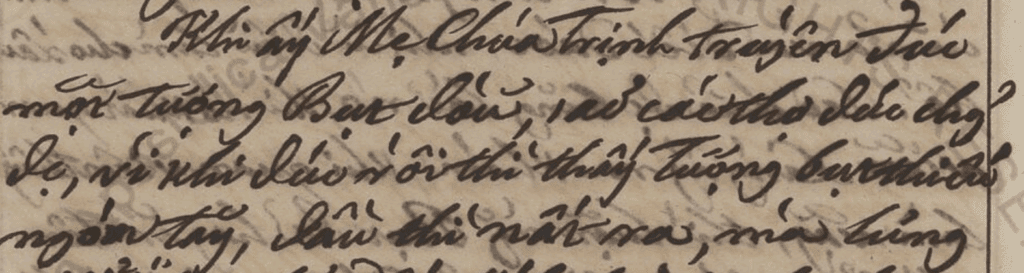 Khi ấy Mẹ Chúa Trịnh truyền đúc
một tượng Bụt đồng, các thợ đúc chg᷃
dc, vì khi đúc rồi thì thấy tượng bụt thiếu
ngón tay, đầu thì nứt ra, mà lưng